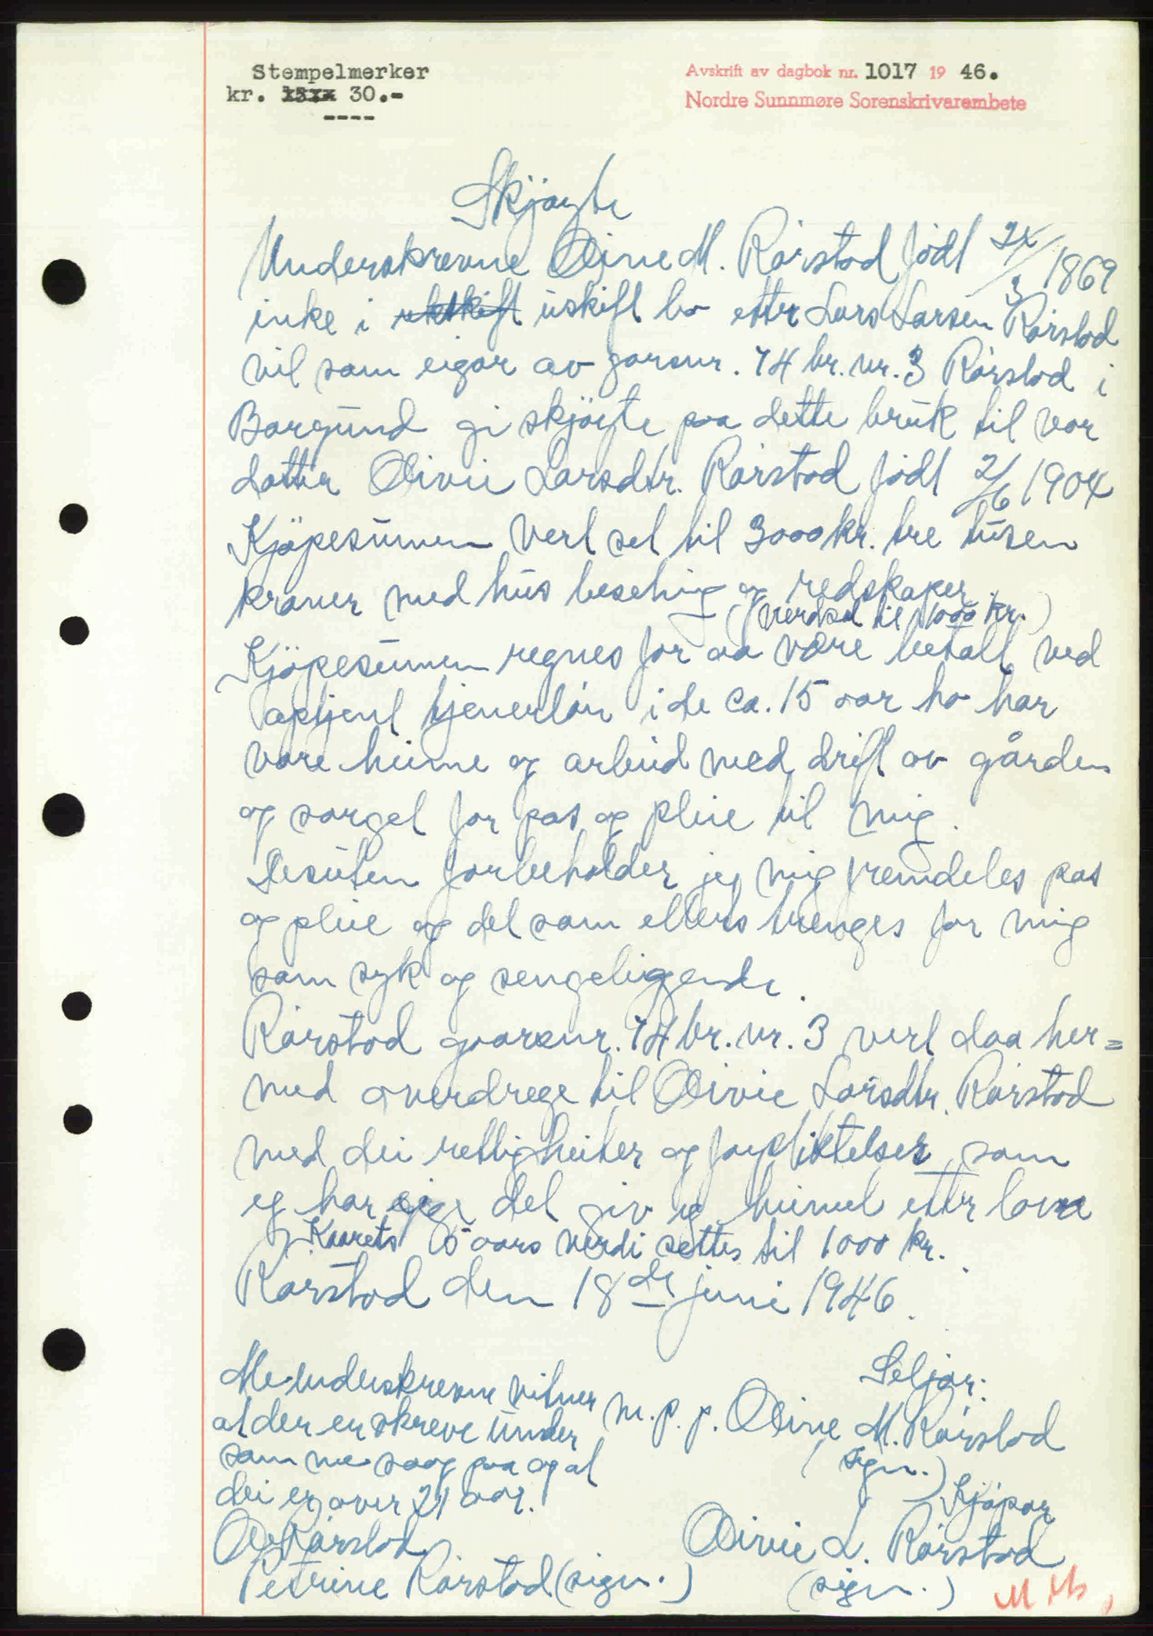 Stempelmerker
kr. 30.-
Avskrift av dagbok nr. 1017 19 46.
Nordre Sunnmøre Sorenskrivarembete
Skjøyte
Underskrevne Oline M. Rørstad født 24/3 1869
inke i uskift bo etter Lars Larsen Rørstad
vil som eigar av garsnr. 74 br. nr. 3 Rørstad i
Borgund gi skjøyte paa dette bruk til vor
datter Olivie Larsdtr. Rørstad født 2/6 1904
Kjøpesumen vert set til 3000 kr. tre tusen
kroner med hus beseting og redskaper
(verdsat til 1000 kr.)
Kjøpesumen regnes for aa være betalt ved
optjent tjenerløn i de ca. 15 aar ho har
vore heime og arbeid med drift av gården
og sørget for pas og pleie til mig.
Desuten forbeholder jeg mig fremdeles pas
og pleie og det som ellers trenges for mig
som syk og sengeliggende.
Rørstad gaarsnr. 74 br. nr. 3 vert daa her=
med overdrege til Olivie Larsdtr. Rørstad
med dei rettigheiter og forpliktelser som
eg har eige det giv eg heimel etter lova
Kaarets 5 aars verdi settes til 1000 kr.
Rørstad den 18de juni 1946.
Me underskrevne vitner
at der er skreve under
som me saag paa og at
dei er over 21 aar.
Rørstad
Petrine Rørstad (sign.)
Seljar:
m. p. p. Oline M. Rørstad
(sign.)
Kjøpar
Olivie L. Rørstad
(sign.)